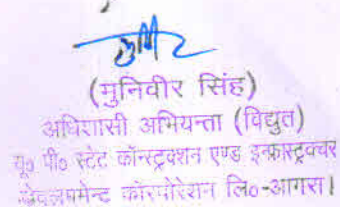 (मुनिवीर सिंह)
अधिशासी अभियन्ता (विद्युत)
यू० पी० स्टेट कॉन्स्ट्रक्शन एण्ड इन्फ्रास्ट्रक्चर
डेवलपमेन्ट कॉरपोरेशन लि०-आगरा।